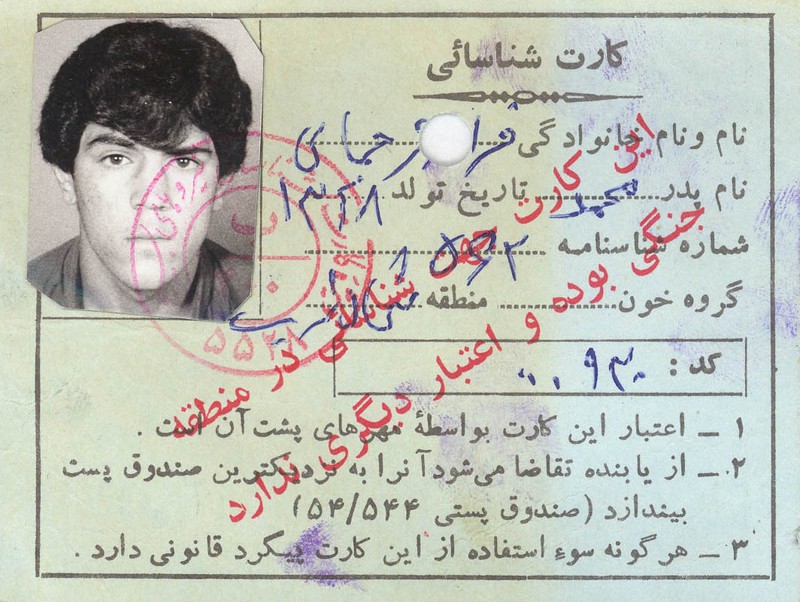 کارت شناسائی
نام ونام خانوادگی
نام پدر محمد تاریخ تولد ۱۳۴۸
شماره شناسنامه ۵۶۲
گروه خون منطقه
کد :
۱ ـ اعتبار این کارت بواسطهٔ مهرهای پشت آن است .
۲ ـ از یابنده تقاضا می‌شود آنرا به نزدیکترین صندوق پست
بیندازد (صندوق پستی ۵۴/۵۴۴)
۳ ـ هرگونه سوء استفاده از این کارت پیگرد قانونی دارد .
این کارت جهت شناسائی در منطقه
جنگی بوده و اعتبار دیگری ندارد
۵۵۲۸